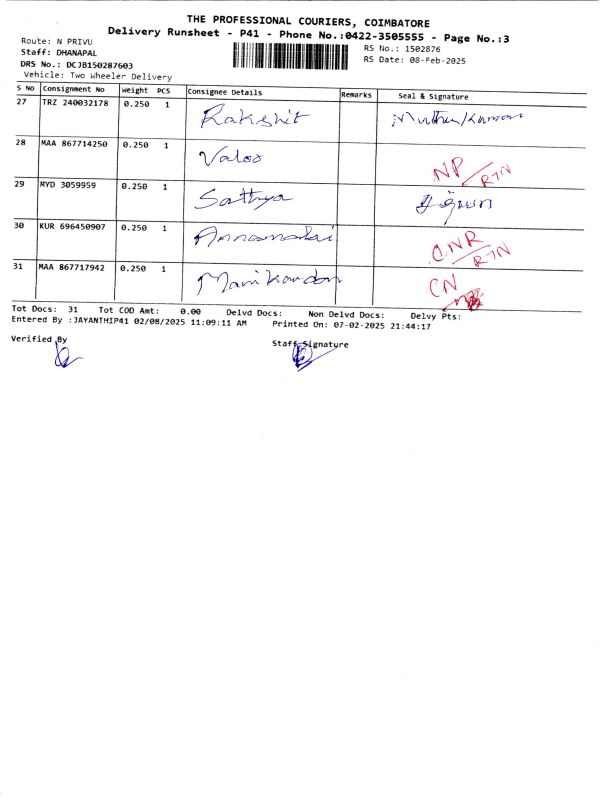 THE PROFESSIONAL COURIERS, COIMBATORE
Delivery Runsheet - P41 - Phone No.:0422-3505555 - Page No.:3
Route: N PRIVU
RS No.: 1502876
Staff: DHANAPAL
RS Date: 08-Feb-2025
DRS No.: DCJB150287603
Vehicle: Two Wheeler Delivery
S No Consignment No Weight PCS Consignee Details Remarks Seal & Signature
27 TRZ 240032178 0.250 1 Rakshit Muthu Kumar
28 MAA 867714250 0.250 1 NP/RTN
29 MYD 3059959 0.250 1 Sathya
30 KUR 696450907 0.250 1 Annamalai CNR/RTN
31 MAA 867717942 0.250 1 Manikandan CN
Tot Docs: 31 Tot COD Amt: 0.00 Delvd Docs: Non Delvd Docs: Delvy Pts:
Entered By :JAYANTHIP41 02/08/2025 11:09:11 AM Printed On: 07-02-2025 21:44:17
Verified By
Staff Signature